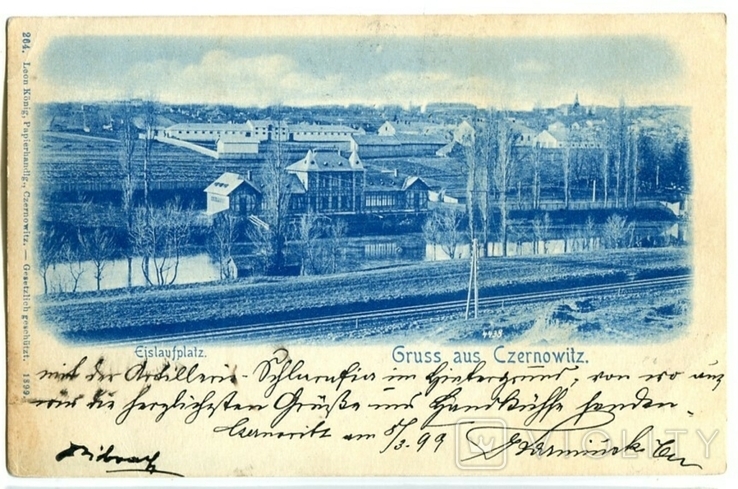 264. Leon König, Papierhandlg., Czernowitz. — Gesetzlich geschützt. 1899.
4438
Eislaufplatz.
Gruss aus Czernowitz.
mit der Artillerie-Schlarafia im Hintergrund, von wo aus
wir die herzlichsten Grüße und Handküsse senden
Czernowitz am 5/3.99
VIOLITY